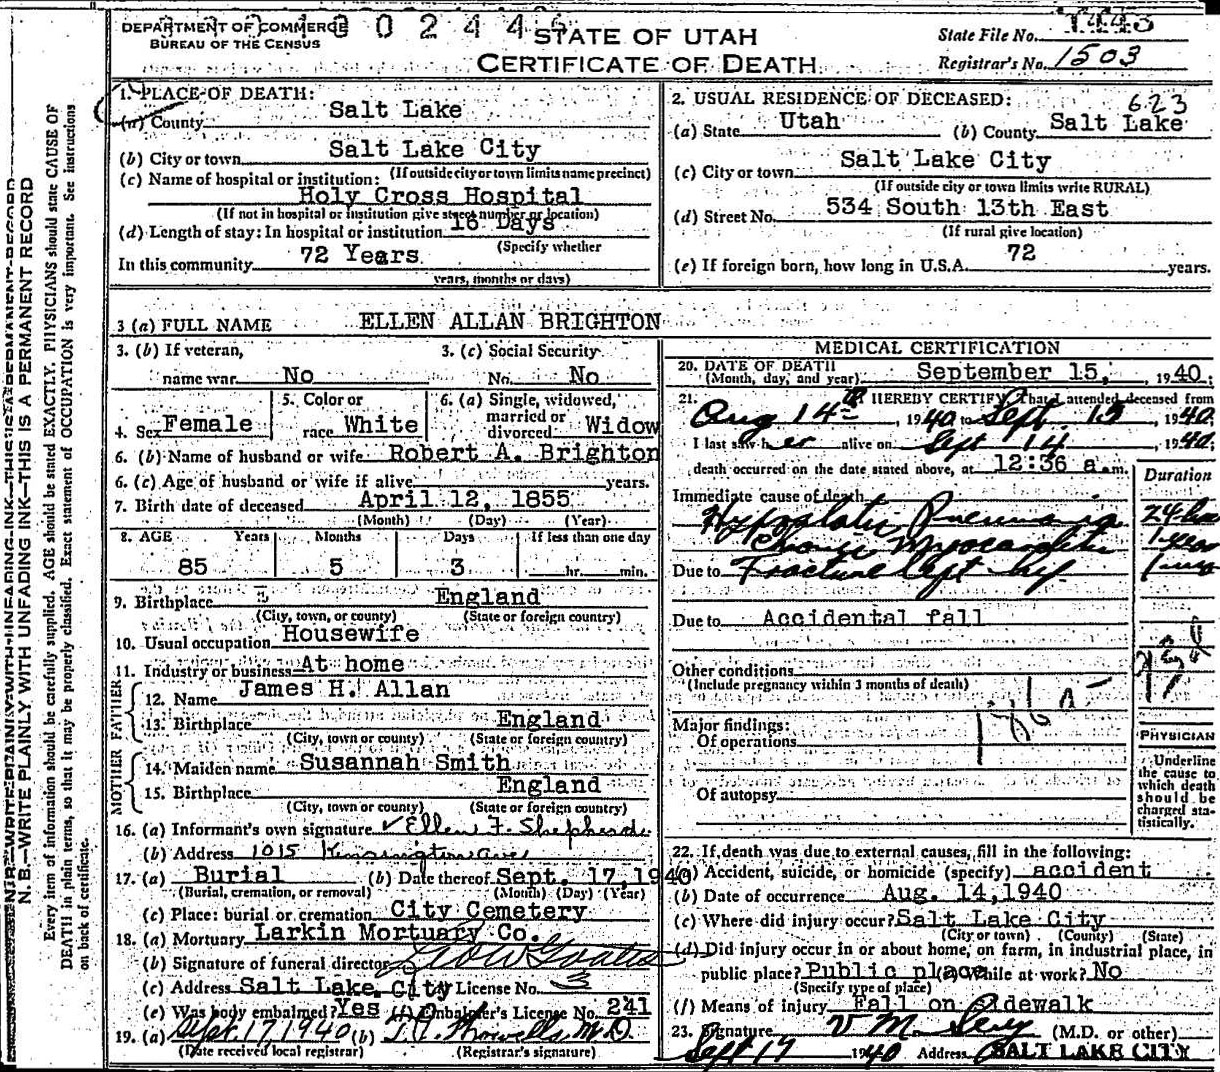 DEPARTMENT OF COMMERCE
BUREAU OF THE CENSUS
0 2 4 4 6
STATE OF UTAH
CERTIFICATE OF DEATH
State File No. 1443
Registrar's No. 1503
1. PLACE OF DEATH:
(a) County Salt Lake
(b) City or town Salt Lake City
(If outside city or town limits name precinct)
(c) Name of hospital or institution:
Holy Cross Hospital
(If not in hospital or institution give street number or location)
(d) Length of stay: In hospital or institution 16 Days
(Specify whether
In this community 72 Years
years, months or days)
2. USUAL RESIDENCE OF DECEASED: 623
(a) State Utah (b) County Salt Lake
(c) City or town Salt Lake City
(If outside city or town limits write RURAL)
(d) Street No. 534 South 13th East
(If rural give location)
(e) If foreign born, how long in U.S.A. 72 years.
3 (a) FULL NAME ELLEN ALLAN BRIGHTON
3. (b) If veteran, name war No
3. (c) Social Security No. No
4. Sex Female
5. Color or race White
6. (a) Single, widowed, married or divorced Widow
6. (b) Name of husband or wife Robert A. Brighton
6. (c) Age of husband or wife if alive years.
7. Birth date of deceased April 12, 1855
(Month) (Day) (Year)
8. AGE Years Months Days If less than one day
85 5 3 hr. min.
9. Birthplace England
(City, town, or county) (State or foreign country)
10. Usual occupation Housewife
11. Industry or business At home
FATHER
12. Name James H. Allan
13. Birthplace England
(City, town or county) (State or foreign country)
MOTHER
14. Maiden name Susannah Smith
15. Birthplace England
(City, town or county) (State or foreign country)
16. (a) Informant's own signature Ellen F. Shepherd
(b) Address 1015 Kensington Ave
17. (a) Burial (b) Date thereof Sept. 17, 1940
(Burial, cremation, or removal) (Month) (Day) (Year)
(c) Place: burial or cremation City Cemetery
18. (a) Mortuary Larkin Mortuary Co.
(b) Signature of funeral director
(c) Address Salt Lake City (d) License No. 3
(e) Was body embalmed? Yes (f) Embalmer's License No. 241
19. (a) Sept. 17, 1940 (b) M.D.
(Date received local registrar) (Registrar's signature)
MEDICAL CERTIFICATION
20. DATE OF DEATH
(Month, day, and year) September 15, 1940
21. I HEREBY CERTIFY, That I attended deceased from
Aug 14th, 1940 to Sept. 15, 1940;
I last saw her alive on Sept 14, 1940;
death occurred on the date stated above, at 12:36 a.m.
Duration
Immediate cause of death
Hypostatic Pneumonia 24 hrs
Chronic Myocarditis 1 year
Due to Fracture left hip 1 mo
Due to Accidental fall
Other conditions
(Include pregnancy within 3 months of death)
Major findings:
Of operations
Of autopsy
PHYSICIAN
Underline the cause to which death should be charged statistically.
22. If death was due to external causes, fill in the following:
(a) Accident, suicide, or homicide (specify) accident
(b) Date of occurrence Aug. 14, 1940
(c) Where did injury occur? Salt Lake City
(City or town) (County) (State)
(d) Did injury occur in or about home, on farm, in industrial place, in
public place? Public place (e) While at work? No
(Specify type of place)
(f) Means of injury Fall on sidewalk
23. Signature (M.D. or other)
Sept 17 1940 Address SALT LAKE CITY
N. B.—WRITE PLAINLY WITH UNFADING INK—THIS IS A PERMANENT RECORD
Every item of information should be carefully supplied. AGE should be stated EXACTLY. PHYSICIANS should state CAUSE OF
DEATH in plain terms, so that it may be properly classified. Exact statement of OCCUPATION is very important. See instructions
on back of certificate.